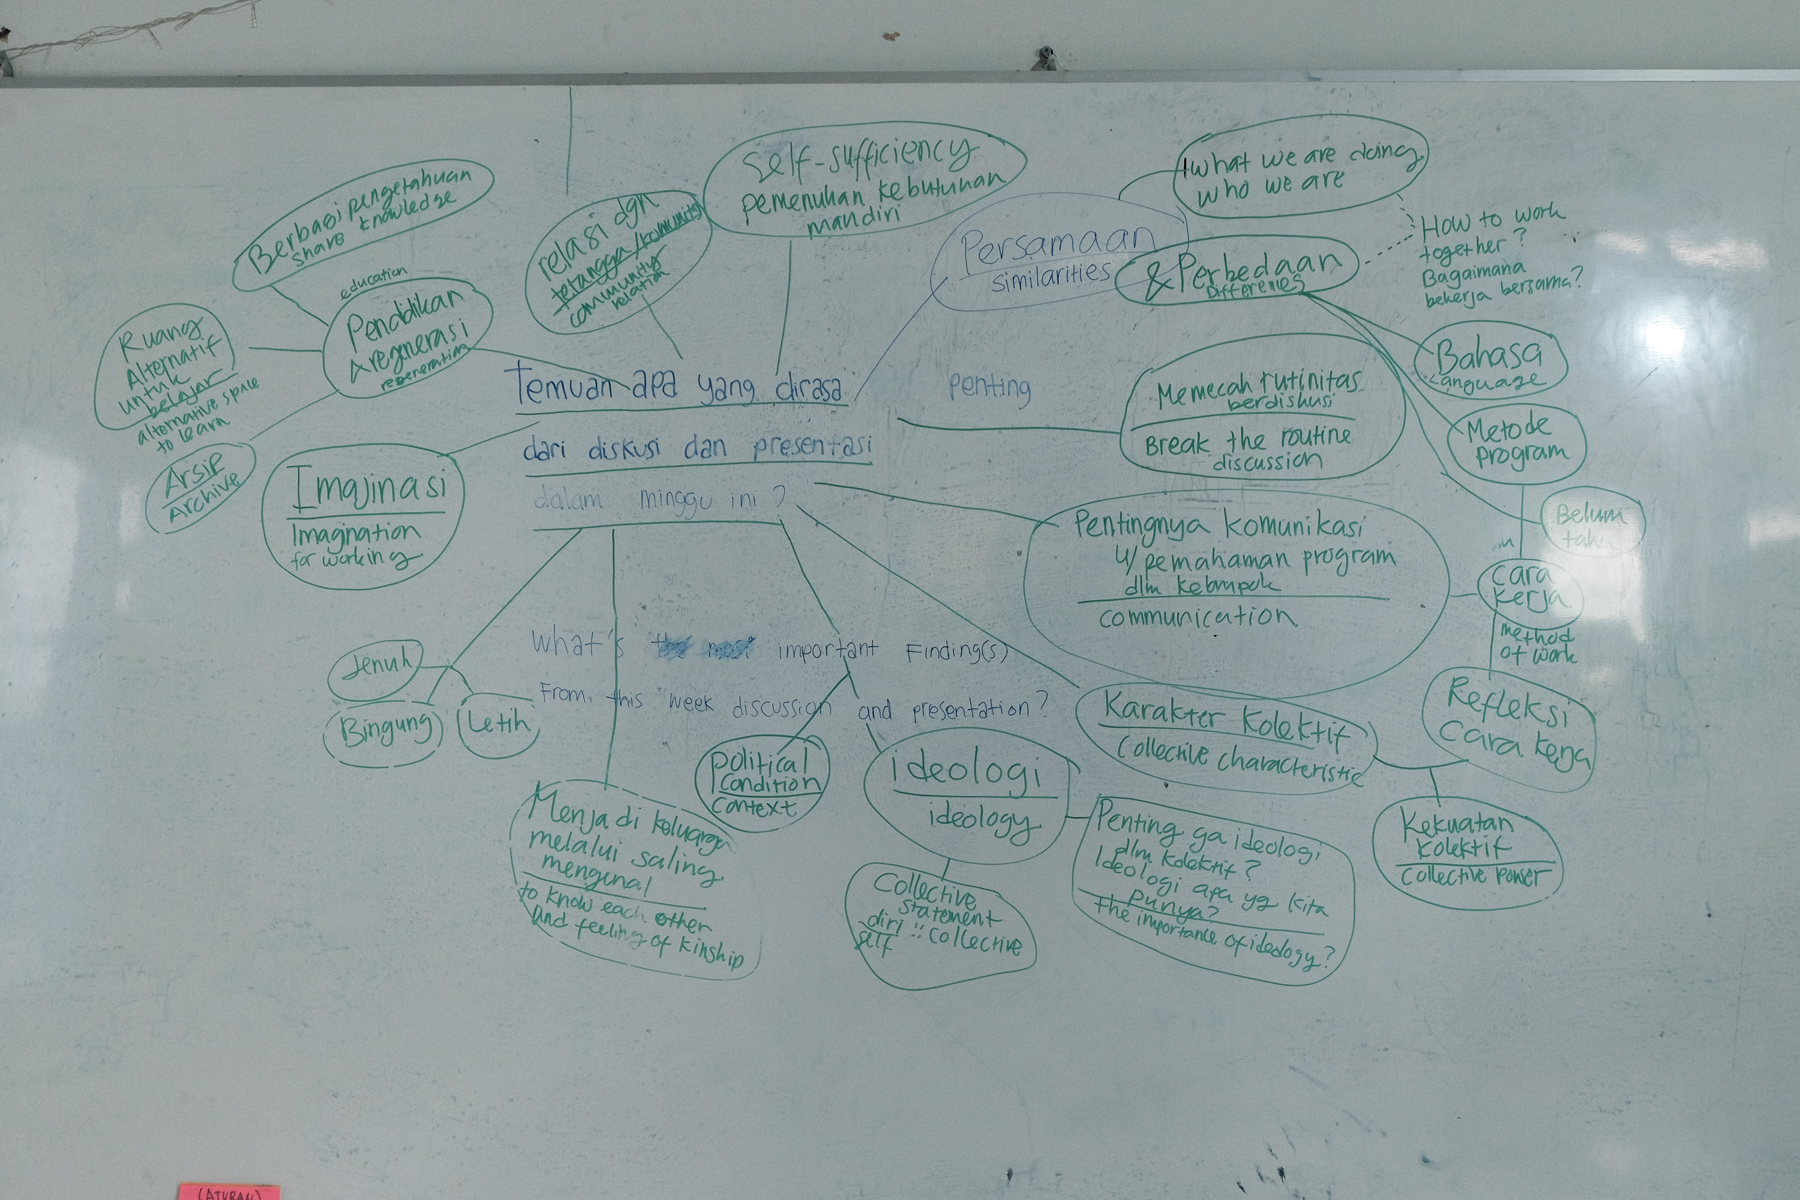 Berbagi pengetahuan
share knowledge
education
Pendidikan
& regenerasi
regeneration
Ruang
Alternatif
untuk
belajar
alternative space
to learn
Arsip
Archive
Imajinasi
Imagination
for working
relasi dgn
tetangga/komunity
community
relation
Self-sufficiency
pemenuhan kebutuhan
mandiri
Persamaan
similarities
& Perbedaan
Differences
what we are doing
who we are
How to work
together?
Bagaimana
bekerja bersama?
Temuan apa yang dirasa penting
dari diskusi dan presentasi
dalam minggu ini?
What's the most important Finding(s)
From this week discussion and presentation?
Memecah rutinitas
berdiskusi
Break the routine
discussion
Bahasa
Language
Metode
program
Belum
tahu
Pentingnya komunikasi
u/ pemahaman program
dlm kelompok
communication
cara
kerja
method
of work
Refleksi
Cara kerja
Karakter Kolektif
Collective characteristic
Kekuatan
kolektif
collective power
Jenuh
Bingung
Letih
Menjadi keluarga
melalui saling
mengenal
to know each other
and feeling of kinship
political
condition
context
ideologi
ideology
Collective
statement
diri :: collective
self
Penting ga ideologi
dlm kolektif?
Ideologi apa yg kita
punya?
the importance of ideology?
(ATURAN)